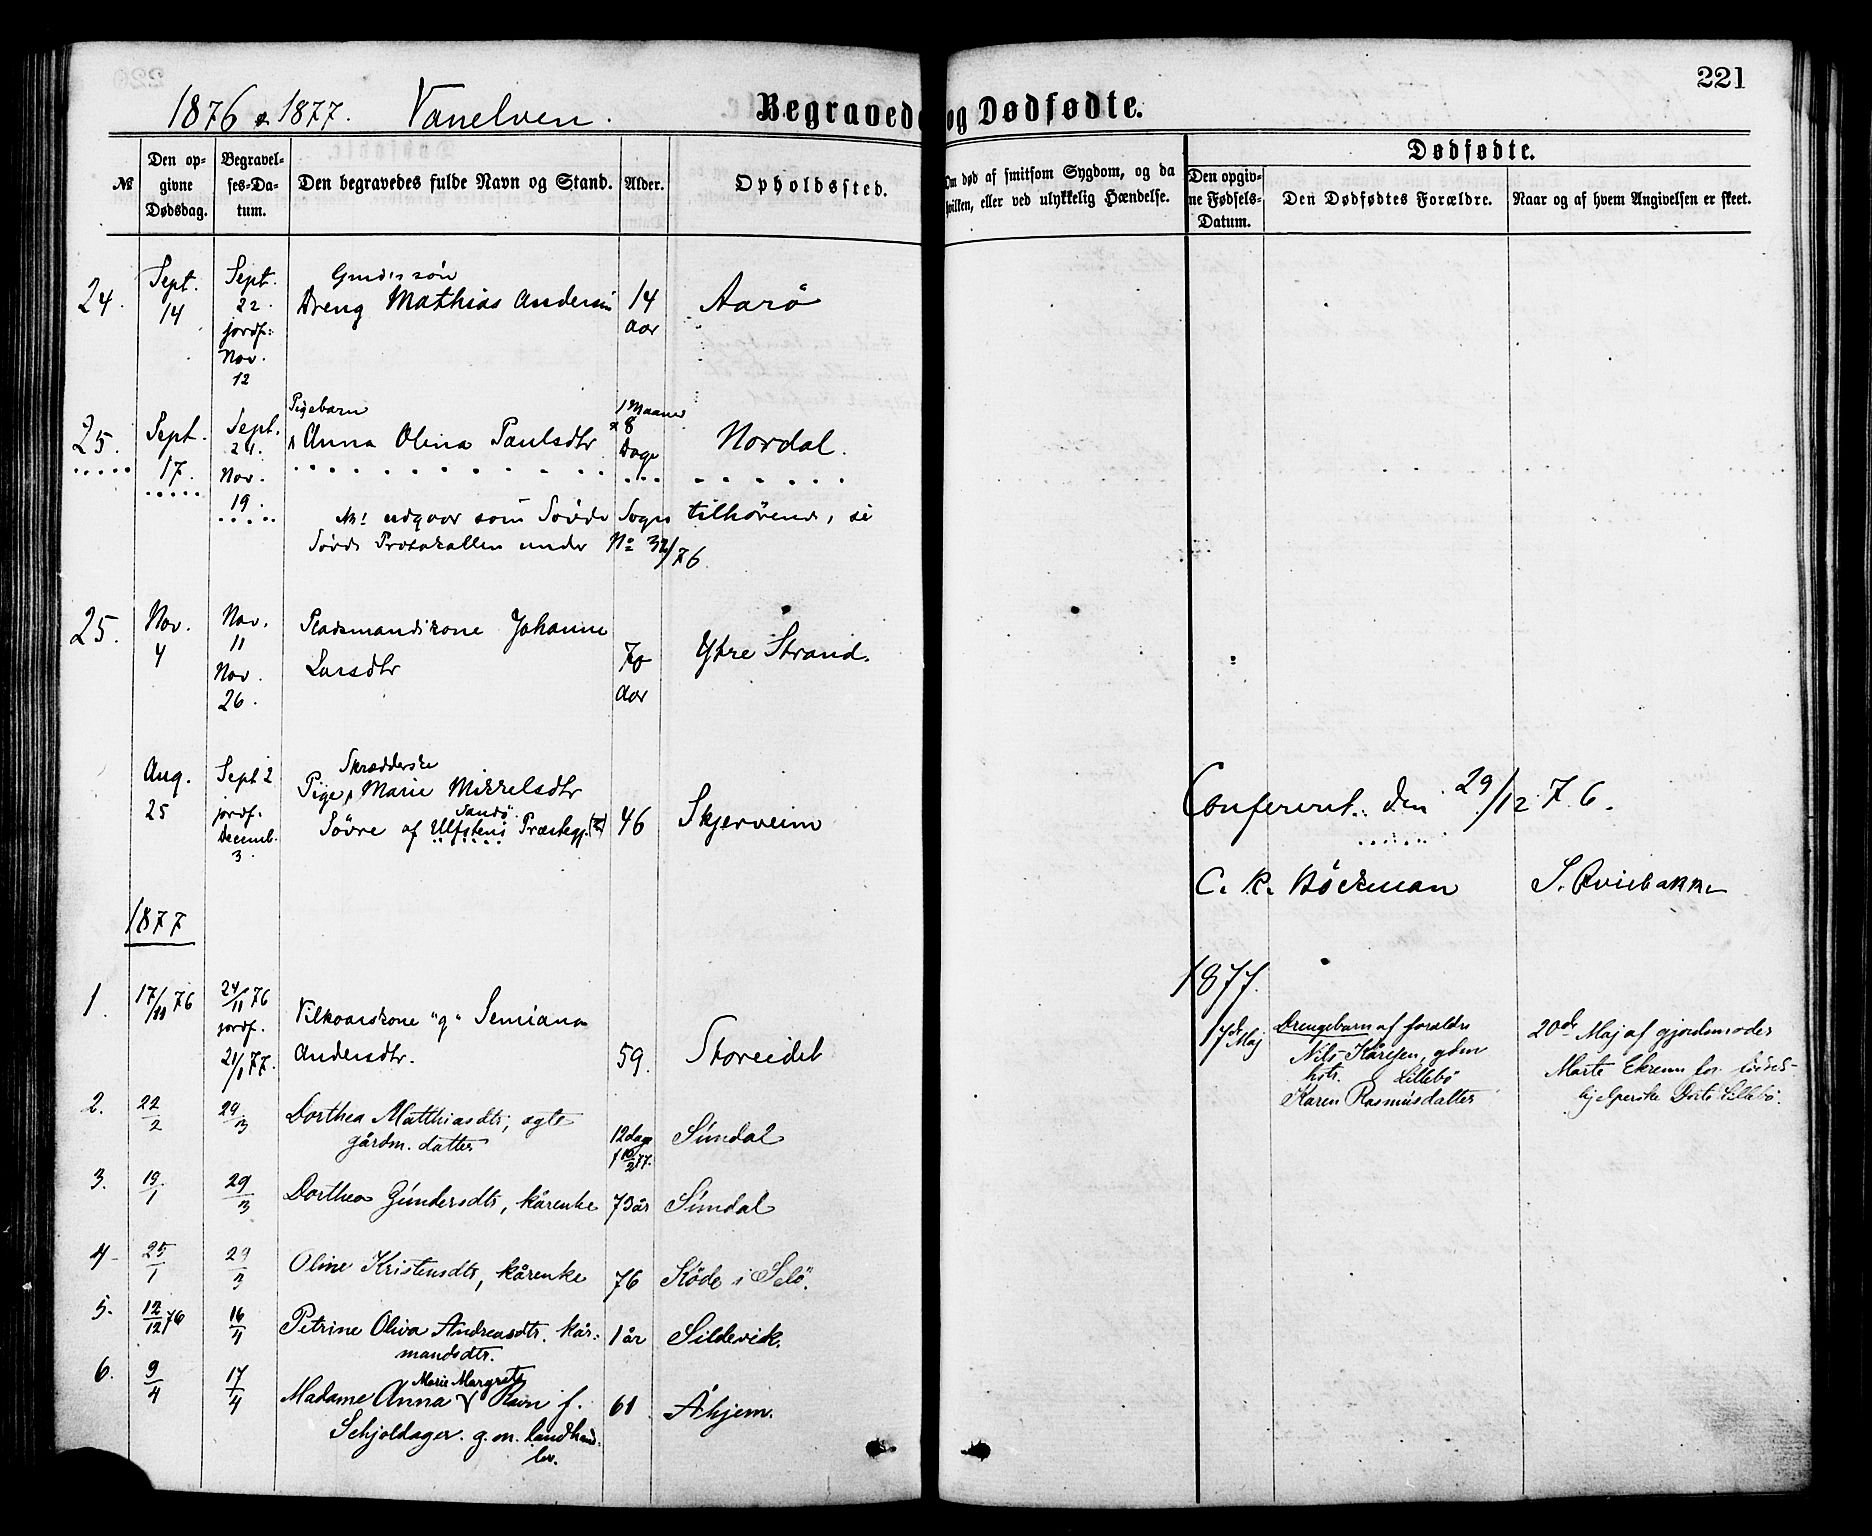 221
1876 & 1877. Vanelven.
Begravede og Dødfødte.
№
Den opgivne Dødsdag.
Begravelses-Datum.
Den begravedes fulde Navn og Stand.
Alder.
Opholdssted.
Om død af smitsom Sygdom, og da
hvilken, eller ved ulykkelig Hændelse.
Dødfødte.
Den opgivne Fødsels-Datum.
Den Dødfødtes Forældre.
Naar og af hvem Angivelsen er skeet.
24. Sept. 14
Sept. 22. jordf: Nov. 12
Dreng Mathias
14 Aar
Aarø
25. Sept. 17.
Sept. 24. Nov. 19
Pigebarn
Anna Olina Paulsdtr
1 Maaned & 8 Dage
Nordal.
NB! udgaar som Søvde Sogn tilhørende, se
Søvde Protokallen under No 32/76
25. Nov. 4
Nov. 11 Nov. 26.
Pladsmandskone Johanne
Larsdtr
70 Aar
Ytre Strand.
Aug. 25
Sept 2 jordf. Decemb. 3.
Skrædderske
Pige, Marie Mikkelsdtr
Sandø
Søvre af Ulfstens Præstegj.
46
Skjerveim
Conferert. den 29/12 76.
C. R. Böckman
S. Qviebakke
1877
1. 17/11 76
24/11 76 jordf. 21/1 77.
Vilkaarskone "g" Semiana
Andersdtr.
59.
Storeidet
1877.
17de Maj
Drengebarn af foraldre
Nils Kåresen, gbm
hstr. Lillebö
Karen Rasmusdatter
20de Maj af gjordemoder
Marte Ekrem for
hjelperske Dorte Lillebö.
2. 22/2 29/3
Dorthea Matthiasdtr, ægte
gårdm. datter
12 dage
f 10/2 77.
Sundal
3. 19/1 29/3
Dorthea Gundersdtr, kårenke
73 år
Sundal
4. 25/1 29/3
Oline Kristensdtr, kårenke
76
Köde i Selö.
5. 12/12 76 16/4
Petrine Oliva Andreasdtr. kår-
mandsdtr.
1 år
Sildevik.
6. 9/4 17/4
Marie Margrete
Madame Anna Ravn f.
Schjoldager. g. m. landhand-
ler.
61
Åhjem.